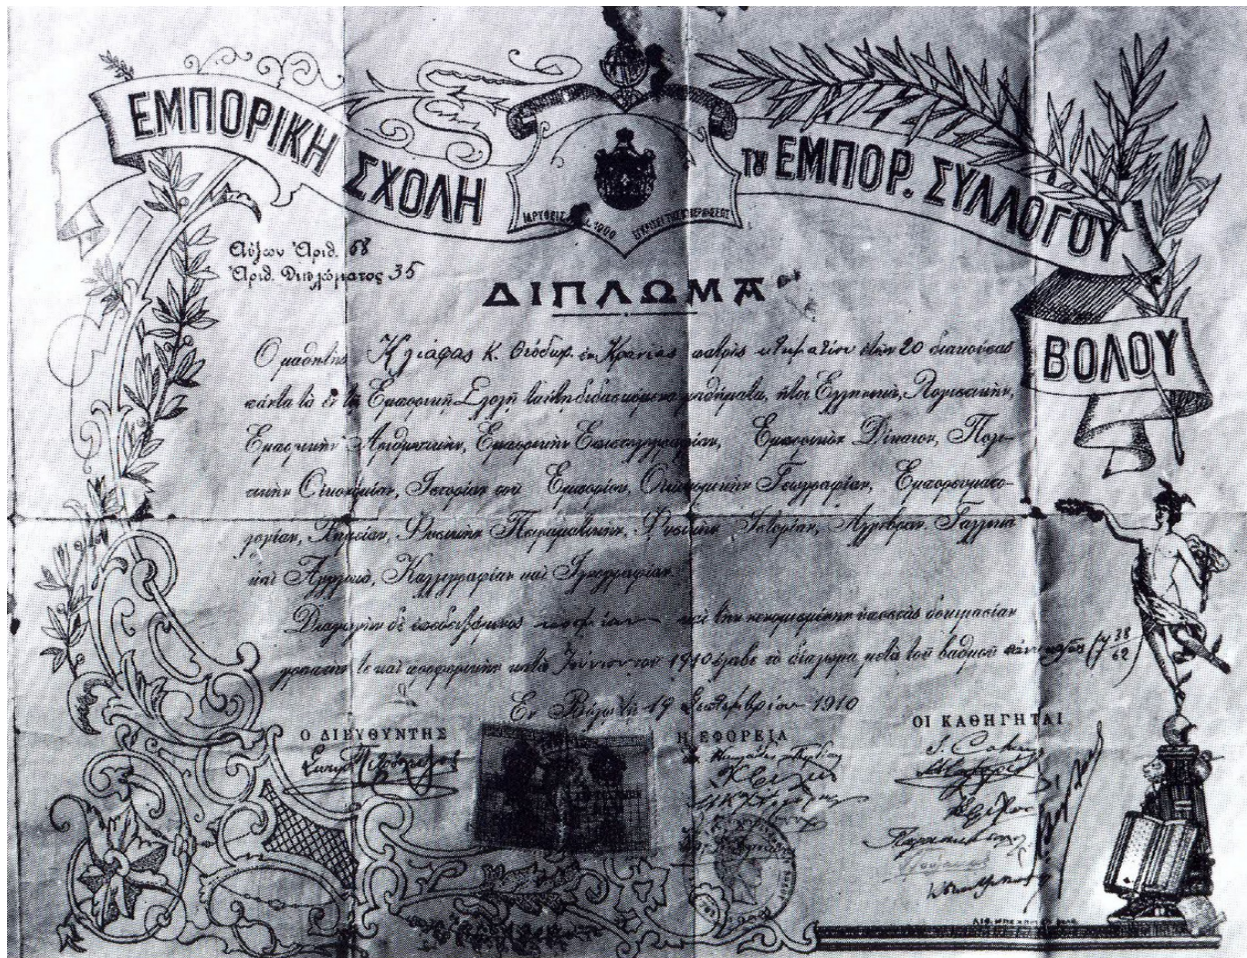 ΕΜΠΟΡΙΚΗ ΣΧΟΛΗ ΤȢ ΕΜΠΟΡ. ΣΥΛΛΟΓΟΥ
ΒΟΛΟΥ
Αὔξων Ἀριθ. 58
Ἀριθ. Διπλώματος 35
ΔΙΠΛΩΜΑ
Ὁ μαθητὴς Κλιάφας Κ. Θεόδωρ. ἐκ Κρανιᾶς πατρὸς κτηματίου ἐτῶν 20 διακούσας
πάντα τὰ ἐν τῇ Ἐμπορικῇ Σχολῇ ταύτῃ διδασκόμενα μαθήματα, ἤτοι Ἑλληνικά, Λογιστικήν,
Ἐμπορικὴν Ἀριθμητικήν, Ἐμπορικὴν Ἐπιστολογραφίαν, Ἐμπορικὸν Δίκαιον, Πολι-
τικὴν Οἰκονομίαν, Ἱστορίαν τοῦ Ἐμπορίου, Οἰκονομικὴν Γεωγραφίαν, Ἐμπορευματο-
λογίαν, Χημείαν, Φυσικὴν Πειραματικήν, Φυσικὴν Ἱστορίαν, Ἄλγεβραν, Γαλλικὰ
καὶ Ἀγγλικά, Καλλιγραφίαν καὶ Ἰχνογραφίαν.
Διαγωγὴν δὲ ἐπιδειξάμενος κοσμίαν καὶ τὴν νενομισμένην ὑποστὰς δοκιμασίαν
γραπτήν τε καὶ προφορικὴν κατὰ Ἰούνιον τοῦ 1910 ἔλαβε τὸ δίπλωμα μετὰ τοῦ βαθμοῦ
Ἐν Βόλῳ τῇ 19 Σεπτεμβρίου 1910
Ο ΔΙΕΥΘΥΝΤΗΣ
Η ΕΦΟΡΕΙΑ
ΟΙ ΚΑΘΗΓΗΤΑΙ